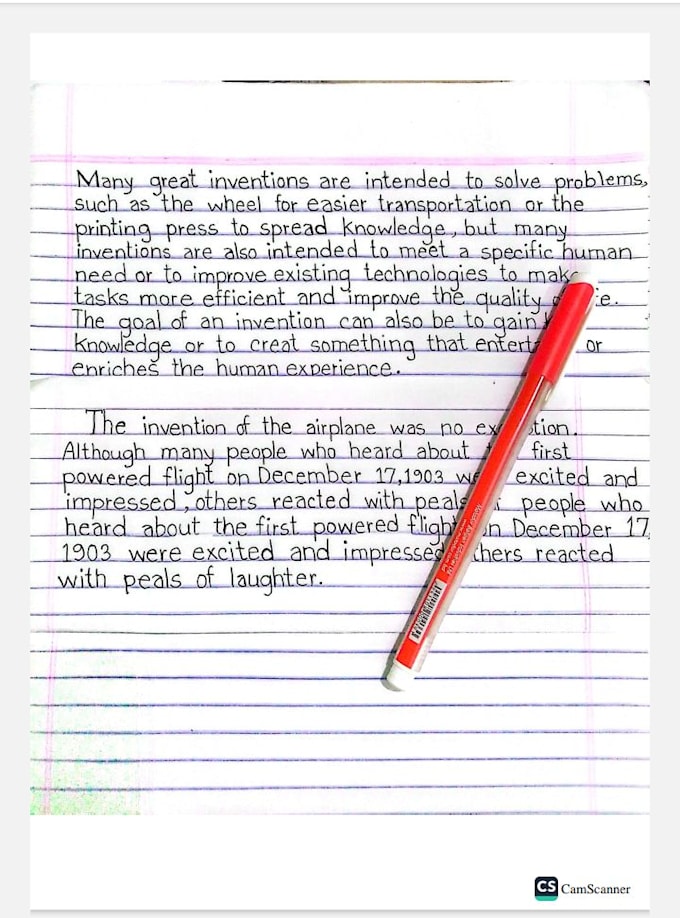 Many great inventions are intended to solve problems,
such as the wheel for easier transportation or the
printing press to spread knowledge, but many
inventions are also intended to meet a specific human
need or to improve existing technologies to make
tasks more efficient and improve the quality
The goal of an invention can also be to gain
knowledge or to creat something that or
enriches the human experience.
The invention of the airplane was no
Although many people who heard about first
powered flight on December 17,1903 excited and
impressed, others reacted with peals people who
heard about the first powered flight in December 17
1903 were excited and impressed others reacted
with peals of laughter.
CS CamScanner